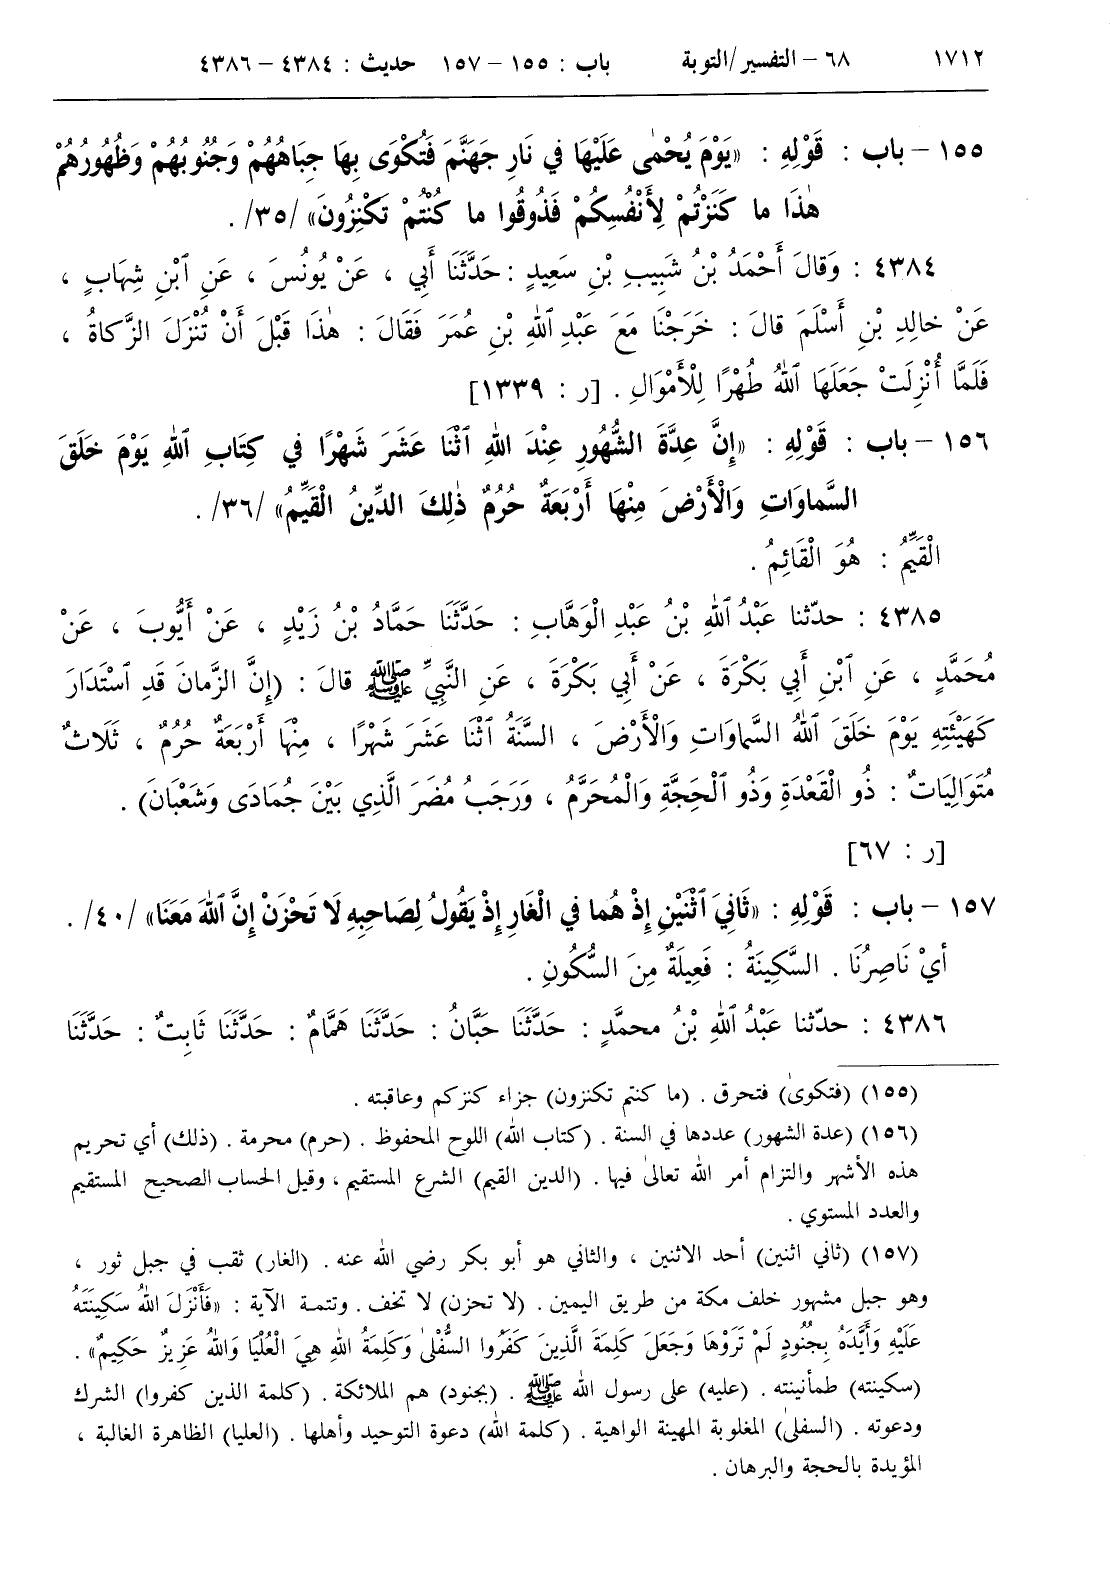 ١٧١٢ ٦٨ – التفسير/التوبة باب : ١٥٥ – ١٥٧ حديث : ٤٣٨٤ – ٤٣٨٦
١٥٥ – باب : قَوْلِهِ : «يَوْمَ يُحْمٰى عَلَيْهَا فِي نَارِ جَهَنَّمَ فَتُكْوَى بِهَا جِبَاهُهُمْ وَجُنُوبُهُمْ وَظُهُورُهُمْ
هٰذَا ما كَنَزْتُمْ لِأَنْفُسِكُمْ فَذُوقُوا ما كُنْتُمْ تَكْنِزُونَ» /٣٥/ .
٤٣٨٤ : وَقالَ أَحْمَدُ بْنُ شَبِيبِ بْنِ سَعِيدٍ : حَدَّثَنَا أَبِي ، عَنْ يُونُسَ ، عَنِ ٱبْنِ شِهَابٍ ،
عَنْ خالِدِ بْنِ أَسْلَمَ قالَ : خَرَجْنَا مَعَ عَبْدِ ٱللهِ بْنِ عُمَرَ فَقَالَ : هٰذَا قَبْلَ أَنْ تُنْزَلَ الزَّكاةُ ،
فَلَمَّا أُنْزِلَتْ جَعَلَهَا ٱللهُ طُهْرًا لِلْأَمْوَالِ . [ر : ١٣٣٩]
١٥٦ – باب : قَوْلِهِ : «إِنَّ عِدَّةَ الشُّهُورِ عِنْدَ اللهِ اثْنَا عَشَرَ شَهْرًا فِي كِتَابِ اللهِ يَوْمَ خَلَقَ
السَّماوَاتِ وَالْأَرْضَ مِنْهَا أَرْبَعَةٌ حُرُمٌ ذٰلِكَ الدِّينُ الْقَيِّمُ» /٣٦/ .
الْقَيِّمُ : هُوَ الْقَائِمُ .
٤٣٨٥ : حدّثنا عَبْدُ ٱللهِ بْنُ عَبْدِ الْوَهَّابِ : حَدَّثَنَا حَمَّادُ بْنُ زَيْدٍ ، عَنْ أَيُّوبَ ، عَنْ
مُحَمَّدٍ ، عَنِ ٱبْنِ أَبِي بَكْرَةَ ، عَنْ أَبِي بَكْرَةَ ، عَنِ النَّبِيِّ ﷺ قالَ : (إِنَّ الزَّمانَ قَدِ ٱسْتَدَارَ
كَهَيْئَتِهِ يَوْمَ خَلَقَ ٱللهُ السَّماوَاتِ وَالْأَرْضَ ، السَّنَةُ ٱثْنَا عَشَرَ شَهْرًا ، مِنْهَا أَرْبَعَةٌ حُرُمٌ ، ثَلَاثٌ
مُتَوَالِيَاتٌ : ذُو الْقَعْدَةِ وَذُو ٱلْحِجَّةِ وَالْمُحَرَّمُ ، وَرَجَبُ مُضَرَ الَّذِي بَيْنَ جُمَادَى وَشَعْبَانَ) .
[ر : ٦٧]
١٥٧ – باب : قَوْلِهِ : «ثَانِيَ ٱثْنَيْنِ إِذْ هُما فِي الْغَارِ إِذْ يَقُولُ لِصَاحِبِهِ لَا تَحْزَنْ إِنَّ ٱللهَ مَعَنَا» /٤٠/ .
أَيْ نَاصِرُنَا . السَّكِينَةُ : فَعِيلَةٌ مِنَ السُّكُونِ .
٤٣٨٦ : حدّثنا عَبْدُ ٱللهِ بْنُ محمَّدٍ : حَدَّثَنَا حَبَّانُ : حَدَّثَنَا هَمَّامٌ : حَدَّثَنَا ثَابِتٌ : حَدَّثَنَا
(١٥٥) (فتكوىٰ) فتحرق . (ما كنتم تكنزون) جزاء كنزكم وعاقبته .
(١٥٦) (عدة الشهور) عددها في السنة . (كتاب الله) اللوح المحفوظ . (حرم) محرمة . (ذلك) أي تحريم
هذه الأشهر والتزام أمر الله تعالىٰ فيها . (الدين القيم) الشرع المستقيم ، وقيل الحساب الصحيح المستقيم
والعدد المستوي .
(١٥٧) (ثاني اثنين) أحد الاثنين ، والثاني هو أبو بكر رضي الله عنه . (الغار) ثقب في جبل ثور ،
وهو جبل مشهور خلف مكة من طريق اليمين . (لا تحزن) لا تخف . وتتمة الآية : «فَأَنْزَلَ اللهُ سَكِينَتَهُ
عَلَيْهِ وَأَيَّدَهُ بِجُنُودٍ لَمْ تَرَوْهَا وَجَعَلَ كَلِمَةَ الَّذِينَ كَفَرُوا السُّفْلىٰ وَكَلِمَةُ اللهِ هِيَ الْعُلْيَا وَاللهُ عَزِيزٌ حَكِيمٌ» .
(سكينته) طمأنينته . (عليه) على رسول الله ﷺ . (بجنود) هم الملائكة . (كلمة الذين كفروا) الشرك
ودعوته . (السفلىٰ) المغلوبة المهينة الواهية . (كلمة الله) دعوة التوحيد وأهلها . (العليا) الظاهرة الغالبة ،
المؤيدة بالحجة والبرهان .